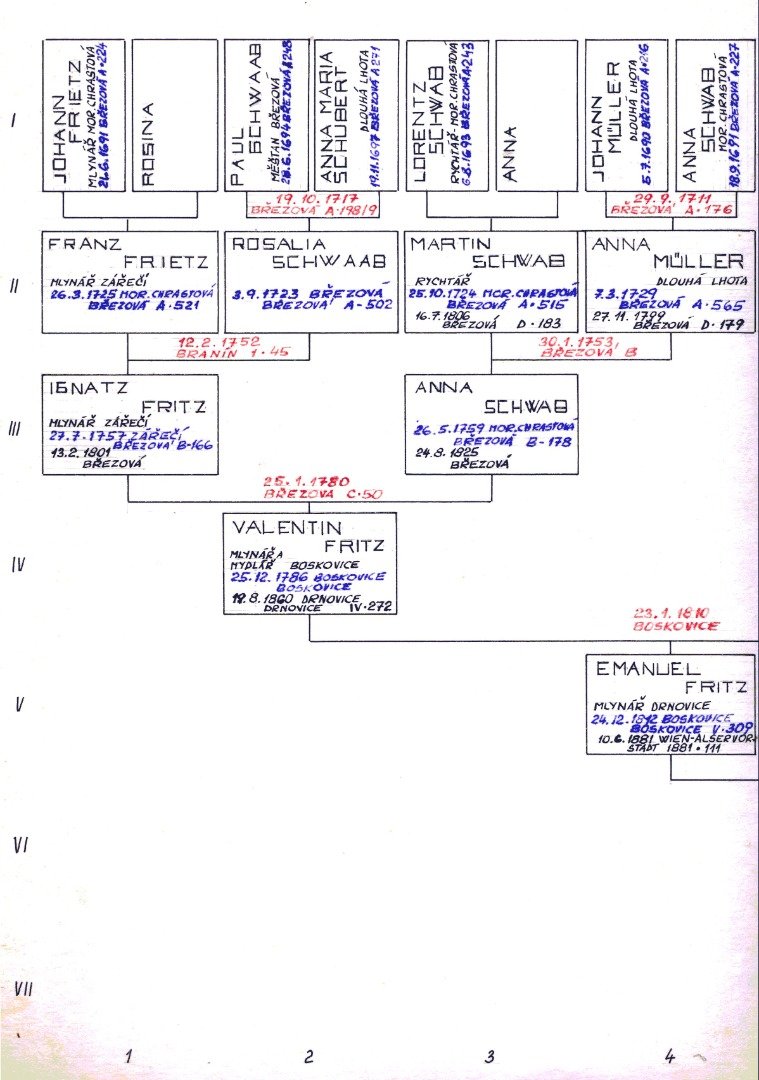 I
JOHANN
FRIETZ
MLYNÁŘ MOR. CHRASTOVÁ
BŘEZOVÁ A•224
ROSINA
PAUL
SCHWAAB
MĚŠŤAN BŘEZOVÁ
28.6.1694 BŘEZOVÁ A 248
ANNA MARIA
SCHUBERT
DLOUHÁ LHOTA
19.11.1697 BŘEZOVÁ A 271
LORENTZ
SCHWAB
RYCHTÁŘ-MOR.CHRASTOVÁ
6.8.1693 BŘEZOVÁ A•243
ANNA
JOHANN
MÜLLER
DLOUHÁ LHOTA
5.7.1690 BŘEZOVÁ A•216
ANNA
SCHWAB
MOR. CHRASTOVÁ
18.9.1691 BŘEZOVÁ A•227
19.10.1717
BŘEZOVÁ A•198/9
29.9.1711
BŘEZOVÁ, A•176
II
FRANZ
FRIETZ
MLYNÁŘ ZÁŘEČÍ
26.3.1725 MOR.CHRASTOVÁ
BŘEZOVÁ A•521
ROSALIA
SCHWAAB
3.9.1723 BŘEZOVÁ
BŘEZOVÁ A-502
MARTIN
SCHWAB
RYCHTÁŘ
25.10.1724 MOR.CHRASTOVÁ
BŘEZOVÁ A•515
16.7.1806
BŘEZOVÁ D•183
ANNA
MÜLLER
DLOUHÁ LHOTA
7.3.1729
BŘEZOVÁ A•565
27.11.1799
BŘEZOVÁ D•179
12.2.1752
BRANÍN 1•45
30.1.1753,
BŘEZOVÁ B
III
IGNATZ
FRITZ
MLYNÁŘ ZÁŘEČÍ
27.7.1757 ZÁŘEČÍ
BŘEZOVÁ B-166
13.2.1801
BŘEZOVÁ
ANNA
SCHWAB
26.5.1759 MOR.CHRASTOVÁ
BŘEZOVÁ B-178
24.8.1825
BŘEZOVÁ
25.1.1780
BŘEZOVÁ C•50
IV
VALENTIN
FRITZ
MLYNÁŘ A
MYDLÁŘ BOSKOVICE
25.12.1786 BOSKOVICE
BOSKOVICE
8.1860 DRNOVICE
DRNOVICE IV•272
23.1.1810
BOSKOVICE
V
EMANUEL
FRITZ
MLYNÁŘ DRNOVICE
24.12.1812 BOSKOVICE
BOSKOVICE V•309
10.6.1881 WIEN-ALSERVOR
STADT 1881•111
VI
VII
1 2 3 4